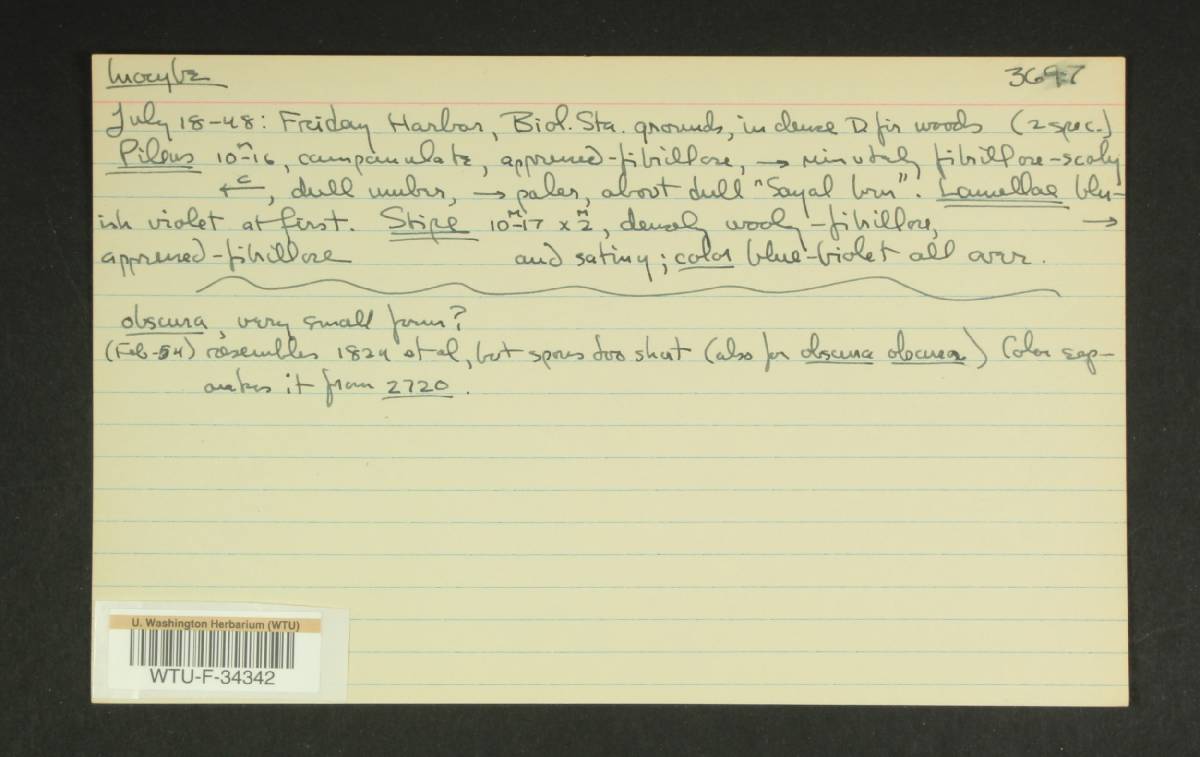 Inocybe 3697
July 18-48: Friday Harbor, Biol. Sta. grounds, in dense D. fir woods (2 spec.)
Pileus 10-16 m, campanulate, appressed-fibrillose, → minutely fibrillose-scaly
← c, dull umber, → paler, about dull "Sayal brn". Lamellae blu-
ish violet at first. Stipe 10-17 m x 2 m, densely wooly-fibrillose, →
appressed-fibrillose and satiny; color blue-violet all over.
obscura, very small form?
(Feb-54) resembles 1824 et al, but spores too short (also for obscura obscura) Color sep-
arates it from 2720.
U. Washington Herbarium (WTU)
WTU-F-34342